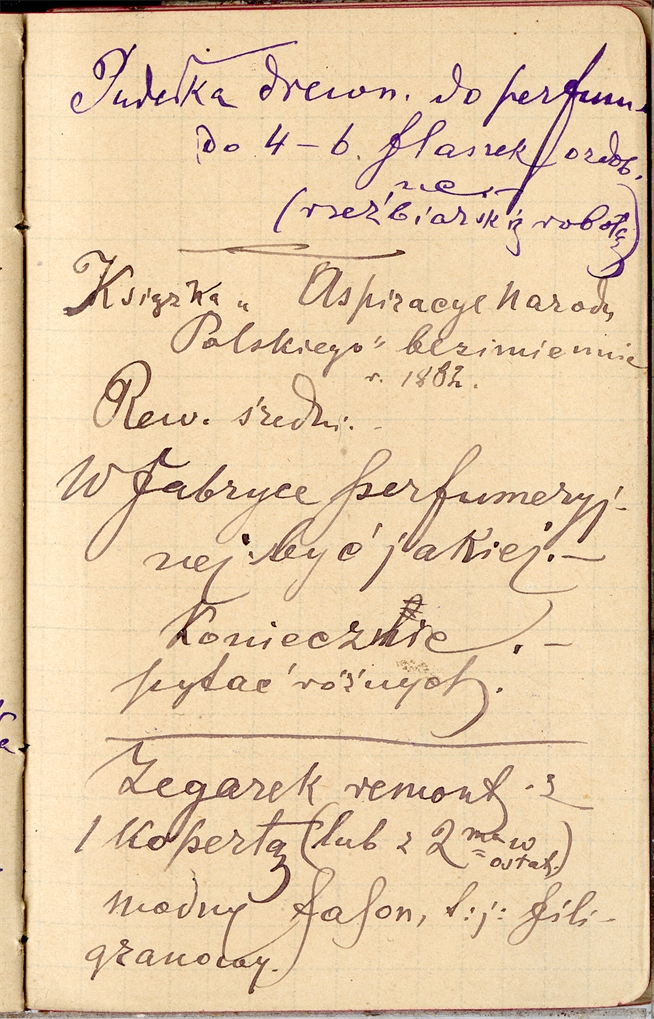 Pudełka drewn. do perfum.
do 4–6 flaszek ozdob.
ne.–
(rzeźbiarską robotą)
Książka „Aspiracye Narodu
Polskiego" bezimiennie
r. 1882.
Rew. średni.–
W fabryce perfumeryj-
nej być jakiej.–
Koniecznie.–
pytać różnych.
Zegarek remont. z
1 kopertą (lub z 2ma w
ostat.)
modny fason, t:j: fili-
granowy.